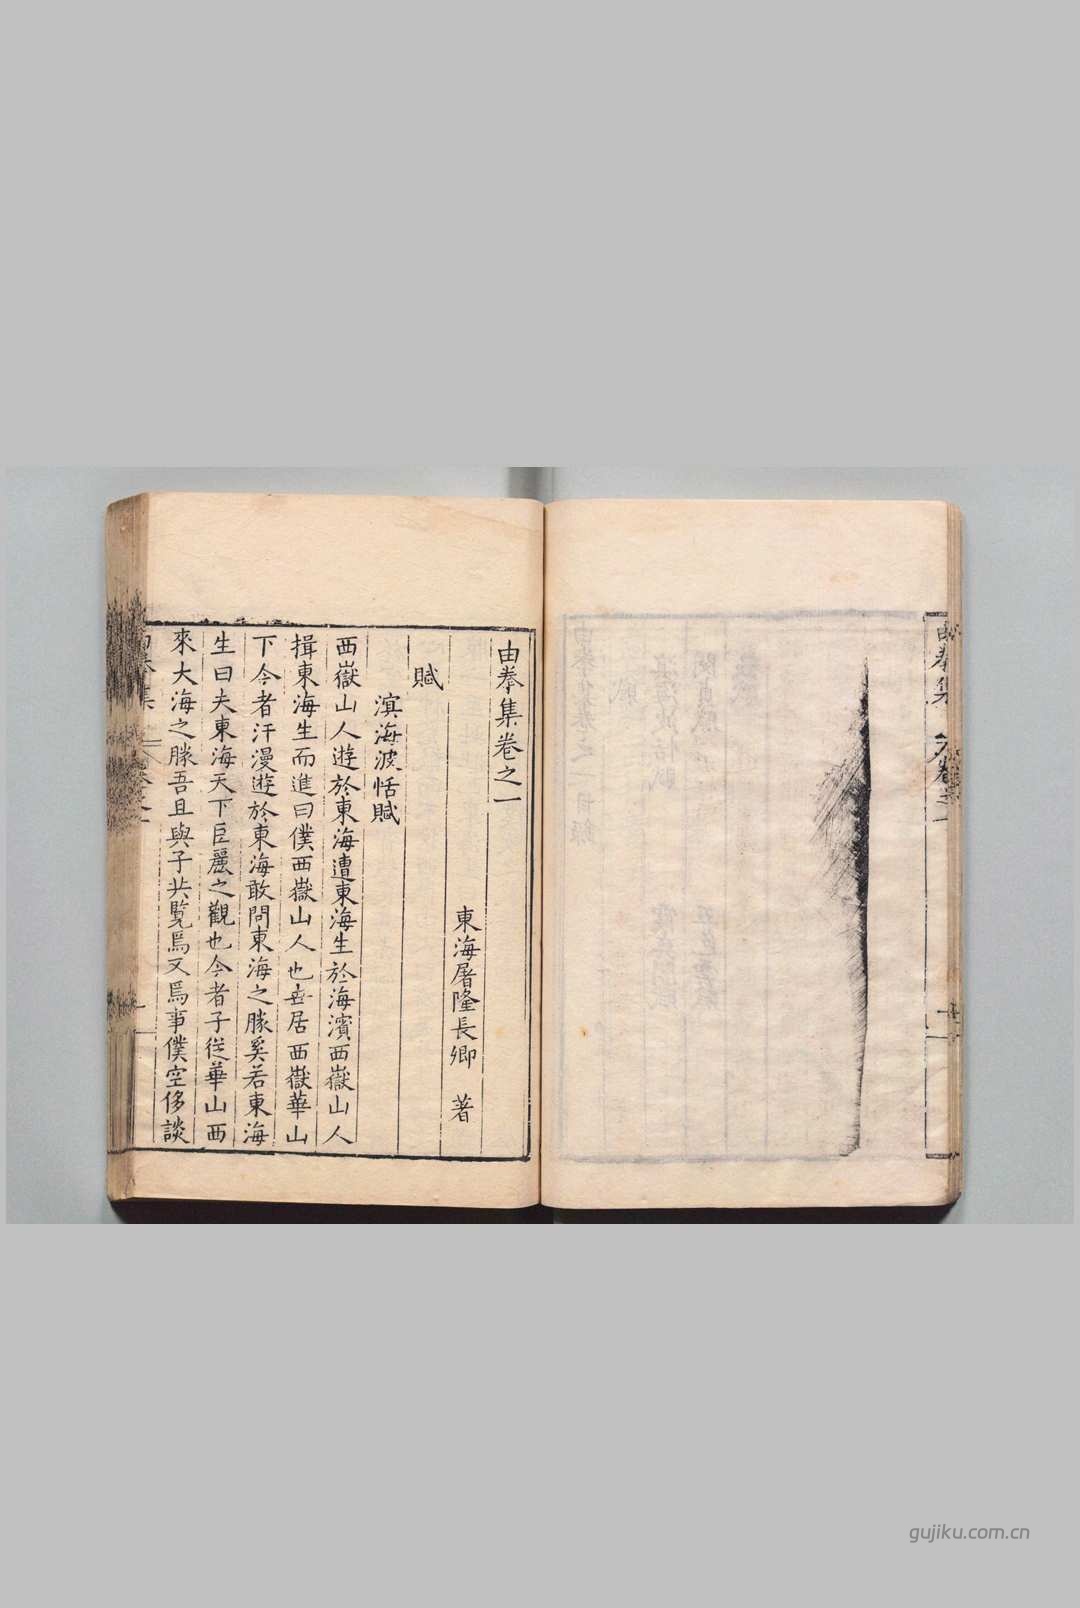 由拳集卷之一
東海屠隆長卿 著
賦
溟海波恬賦
西嶽山人遊於東海遭東海生於海濱西嶽山人
揖東海生而進曰僕西嶽山人也世居西嶽華山
下今者汗漫遊於東海敢問東海之勝奚若東海
生曰夫東海天下巨麗之觀也今者子從華山西
來大海之勝吾且與子共覧焉又焉事僕空侈談
由拳集
卷之一
gujiku.com.cn